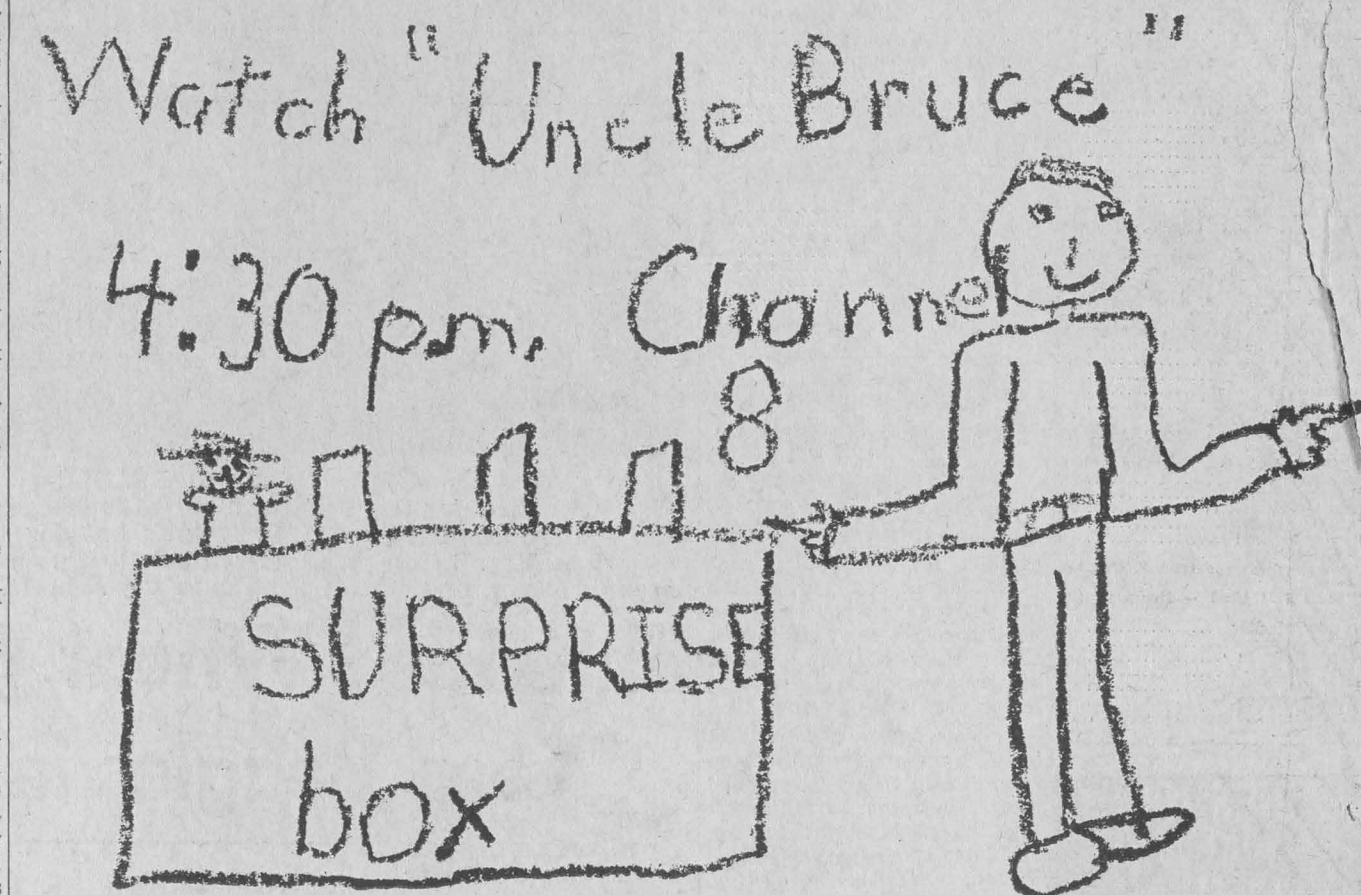 Watch "Uncle Bruce"
4:30 p.m. Channel
8
SURPRISE
box